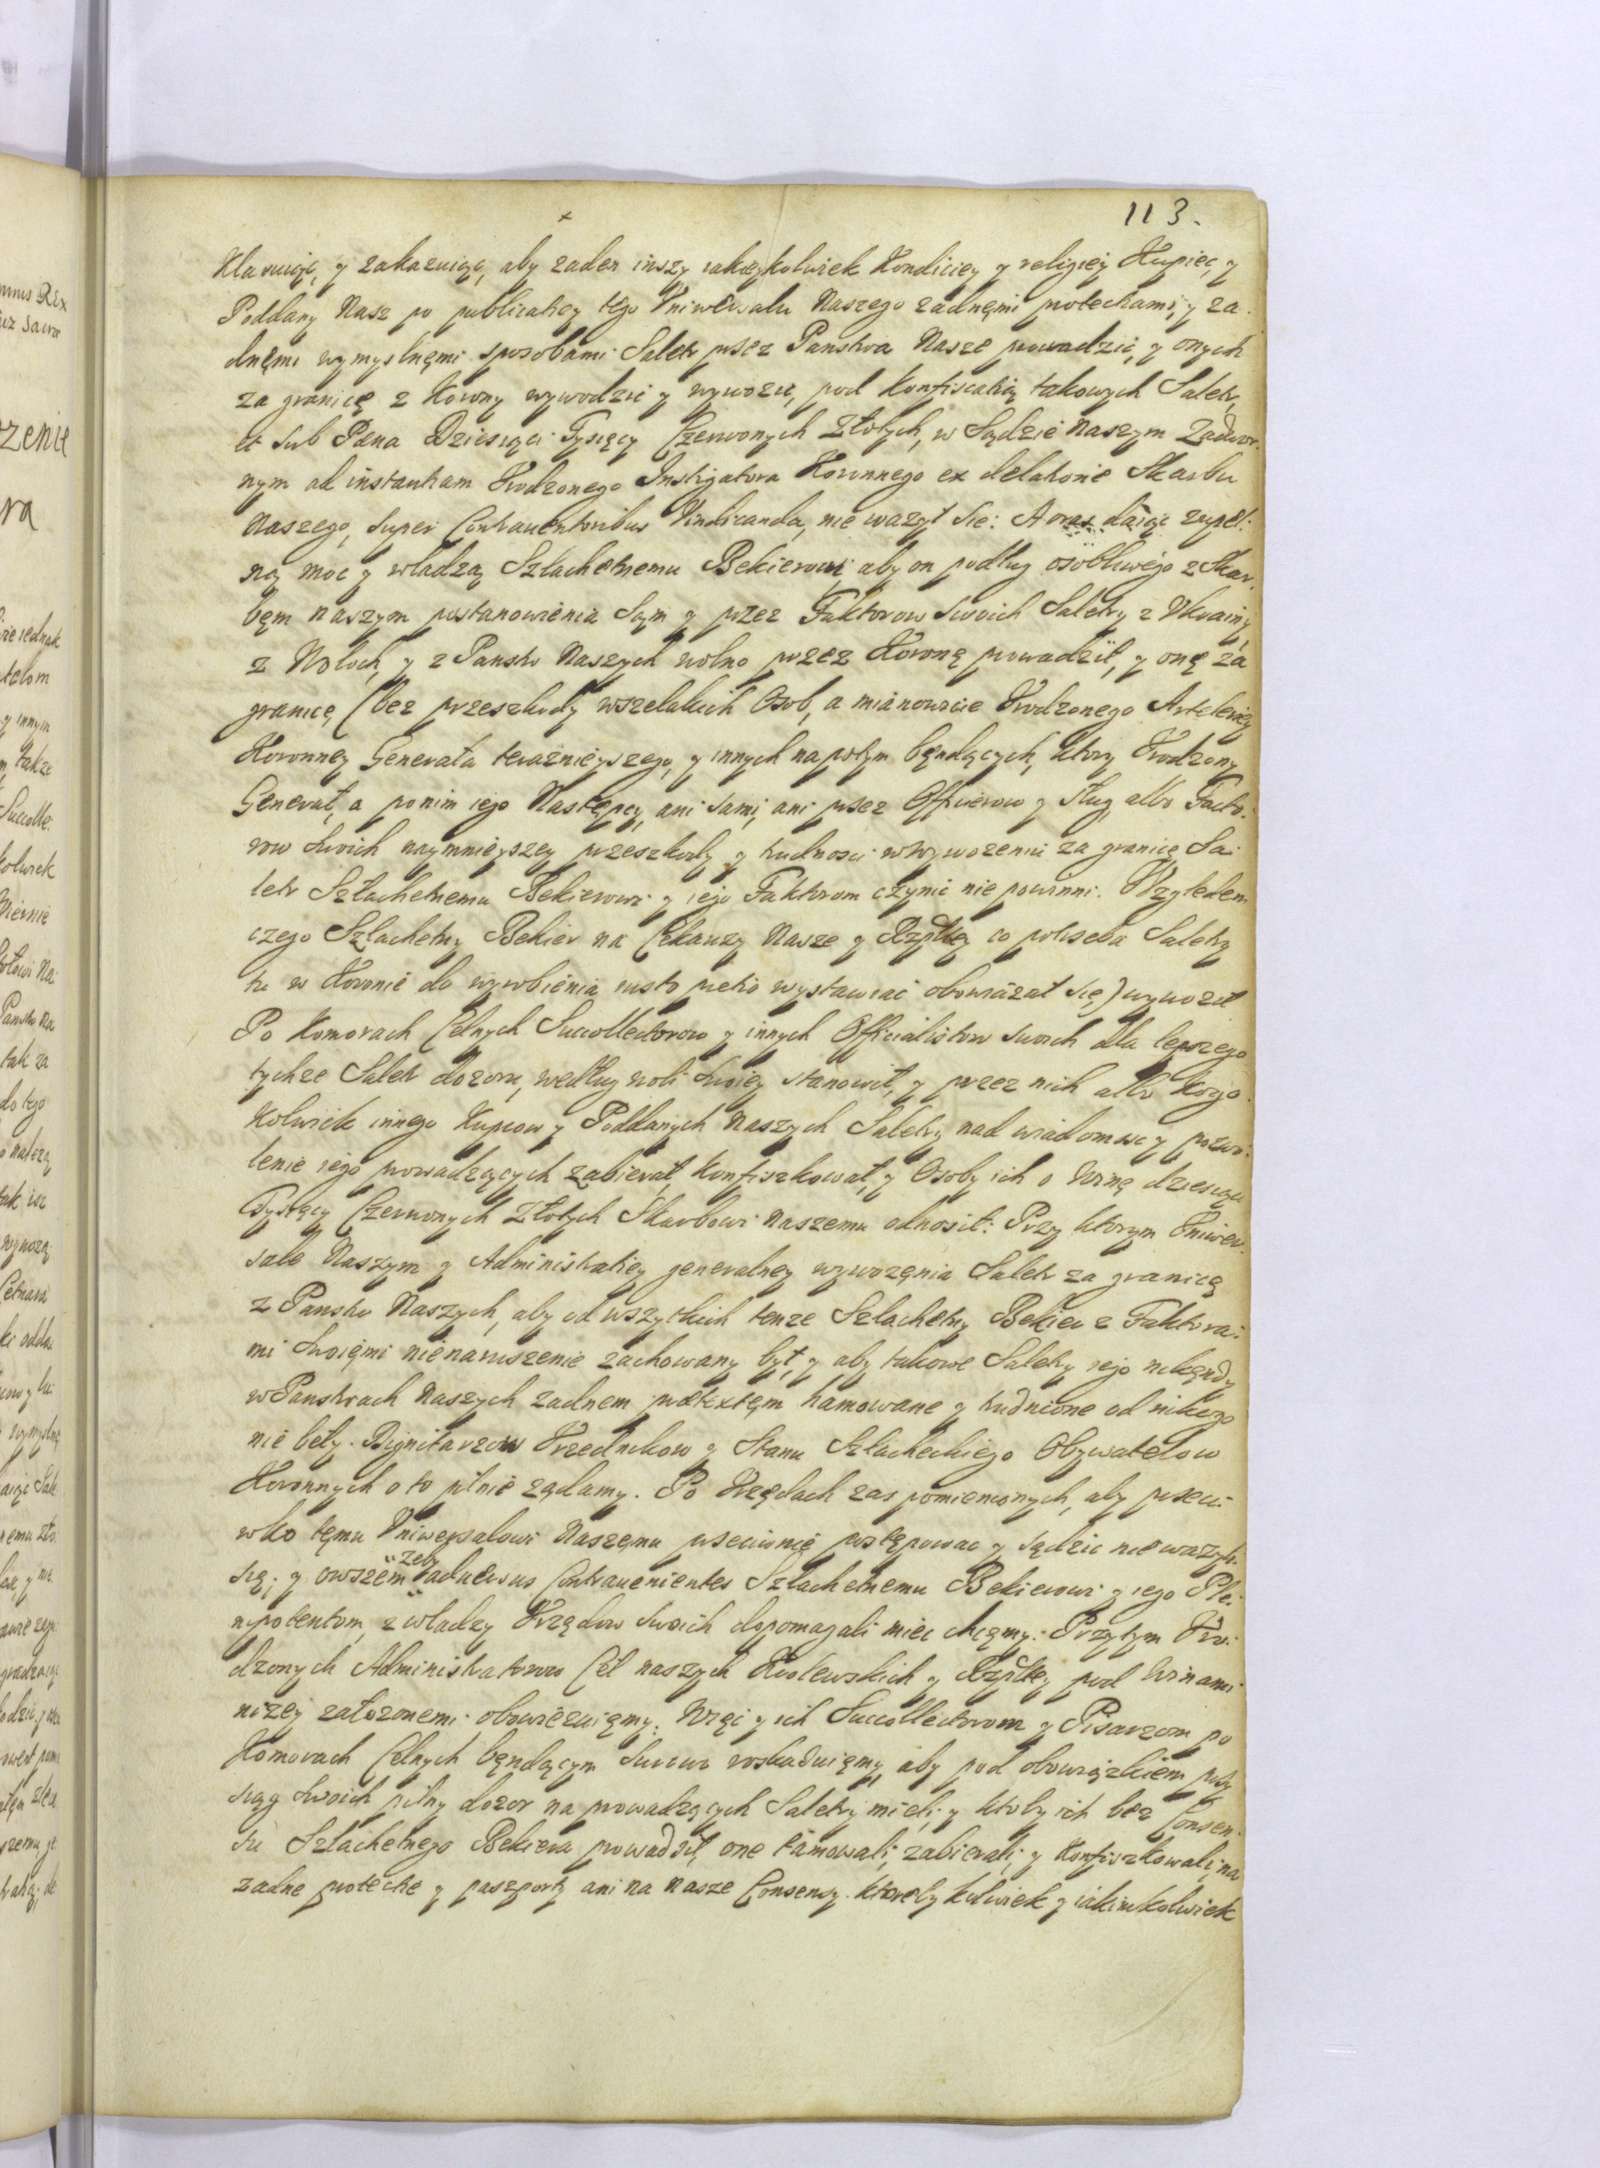 113.
klaruiąc, y zakazuiąc, aby zaden inszy iakieykolwiek Kondiciey y religiey Kupiec, y
Poddany Nasz po publikatiey tego Vniwersału Naszego zadnęmi protectiami, y za-
dnęmi wymyslnęmi sposobami Saletr przez Panstwa Nasze prowadzić, y onych
za granicę z Korony wywodzić y wywozić, pod konfiscatią takowych Saletr,
et sub Pæna Dziesiąci Tysięcy Czerwonych Złotych, w Sądzie Naszym Zadwor-
nym ad instantiam Vrodzonego Instigatora Koronnego ex delatione Skarbu
Naszego, super Contrauentoribus Vindicanda, nie ważył się: A oraz daiąc zupeł-
ną moc y władzą Szlachetnemu Bekierowi, aby on podług osobliwego z Skar-
bęm naszym postanowienia Sąm y przez Faktorow swoich Saletry z Vkrainy
z Włoch, y z Panstw Naszych wolno przez Koronę prowadził, y onę za
granicę (bez przeszkody wszelakich Osob, a mianowicie Vrodzonego Arteleriey
Koronney Generała teraznieyszego, y innych napotym bęndących, ktory Vrodzony
Generał, a po nim iego Następcy, ani sami, ani przez Officierow y sług albo Facto-
row swoich naymnieyszey przeszkody y trudnosci w wywozeniu za granicę Sa-
letr Szlachetnemu Bekierowi y iego Faktorom czynić nie powinni. Względem
czego Szlachetny Bekier na Cekauzy Nasze y Rzptey co potrzeba Saletry
tu w Koronie do wyrobienia iusto pretio wystawiać obowiązał się) wywoził
Po Komorach Celnych Succollectorow y innych Officialistow swoich dla lepszego
tychze Saletr dozoru, według woli swoiey stanowił, y przez nich albo kogo-
kolwiek innego Kupcow y Poddanych Naszych Saletry nad wiadomosc y pozwo-
lenie iego prowadzących zabierał, konfiszkował, y Osoby ich o winę dziesiąciu
Tysięcy Czerwonych Złotych Skarbowi Naszemu odnosił: Przy ktorym Vniwer-
sale Naszym y Administratiey generalney wywozęnia Saletr za granicę
z Panstw Naszych, aby od wszytkich tenze Szlachetny Bekier z Faktora-
mi swoięmi nienaruszenie zachowany był, y aby takowe Saletry iego nikęndy
w Panstwach Naszych zadnem prætextęm hamowane y trudnione od nikogo
nie były. Dignitarzow Vrzednikow y Stanu Szlacheckiego Obywatelow
Koronnych o to pilnie ządamy. Po Vrzędach zas pomienionych, aby przeci-
wko tęmu Vniwersałowi Naszęmu przeciwnie postępowac y sądzic nie wazyli
się; y owszem zeby aduersus Contrauenientes Szlachetnemu Bekierowi y iego Ple-
nipotentom, z władzy Vrzędow swoich dopomagali miec chcęmy: Przytym Vro-
dzonych Administratorow Ceł naszych Krolewskich y Rzptey pod winami
nizey załozonemi obowiezuięmy. Wzgi y ich Succollectorom y Pisarzom po
Komorach Celnych bęndącym surowo roskazuięmy, aby pod obowiązkiem przy-
siąg swoich pilny dozor na prowadzących Saletry mieli, y ktoby ich bez Consen-
su Szlachetnego Bekiera prowadził, one tamowali, zabierali, y Konfiszkowali, na
zadne protectie y paszporty ani na nasze Consensy ktorebykolwiek y iakimkolwiek